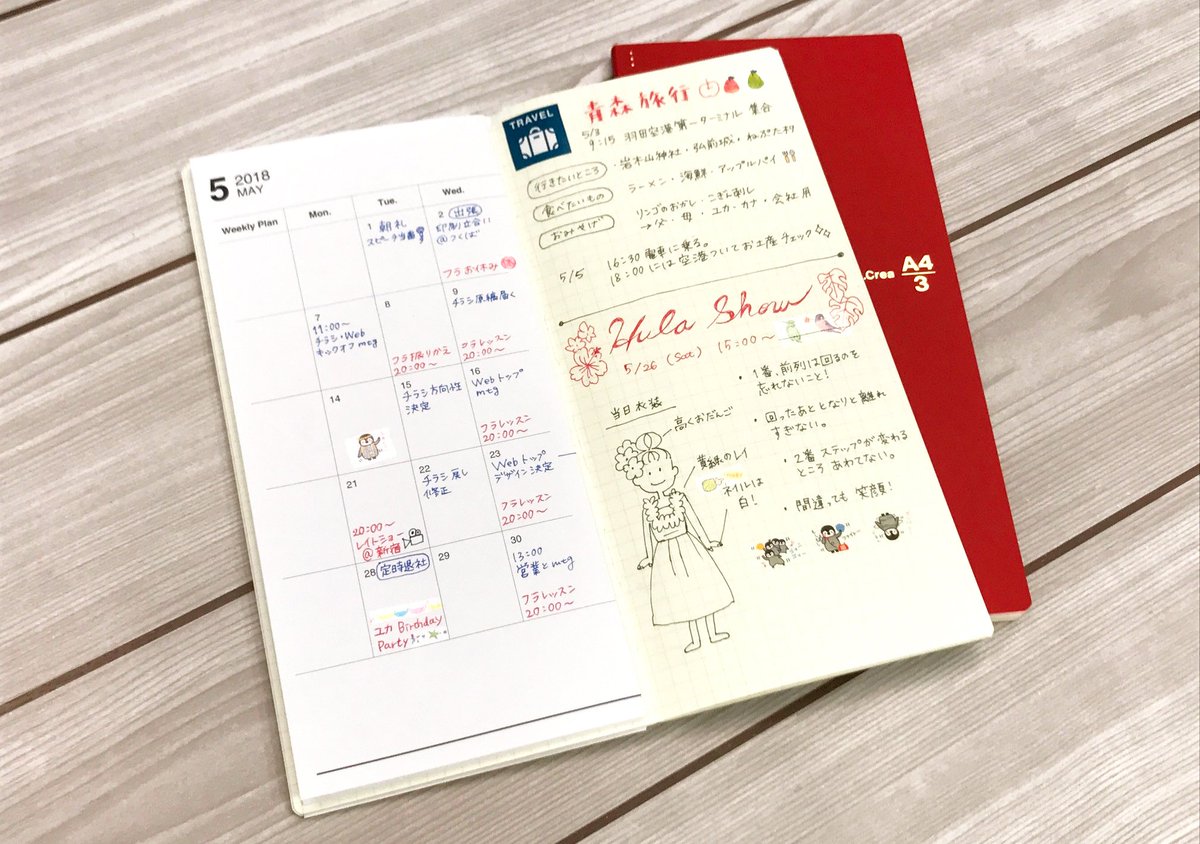 5 2018
MAY
Weekly Plan
Mon.
Tue.
Wed.
1 朝礼
スピーチ当番
2 出張
印刷立合い
@つくば
フラお休み
7
11:00～
チラシ・Web
キックオフmtg
8
フラ振りかえ
20:00～
9
チラシ原稿届く
フラレッスン
20:00～
14
15
チラシ方向性
決定
16
Webトップ
mtg
フラレッスン
20:00～
21
20:00～
レイトショー
@新宿
22
チラシ戻し
修正
23
Webトップ
デザイン決定
フラレッスン
20:00～
28 定時退社
ユカ Birthday
Party
29
30
13:00
営業とmtg
フラレッスン
20:00～
TRAVEL
青森旅行
5/3
9:15 羽田空港第一ターミナル 集合
行きたいところ
・岩木山神社・弘前城・ねぷた村
食べたいもの
ラーメン・海鮮・アップルパイ
おみやげ
リンゴのおかし・こぎん刺し
→父・母・ユカ・カナ・会社用
5/5
16:30 電車に乗る。
18:00には空港ついてお土産チェック
Hula Show
5/26 (Sat) 15:00～
当日衣装
高くおだんご
黄緑のレイ
ネイルは
白!
・1番、前列は回るのを
忘れないこと!
・回ったあととなりと離れ
すぎない。
・2番 ステップが変わる
ところ あわてない。
・間違っても 笑顔!
.Crea A4
3